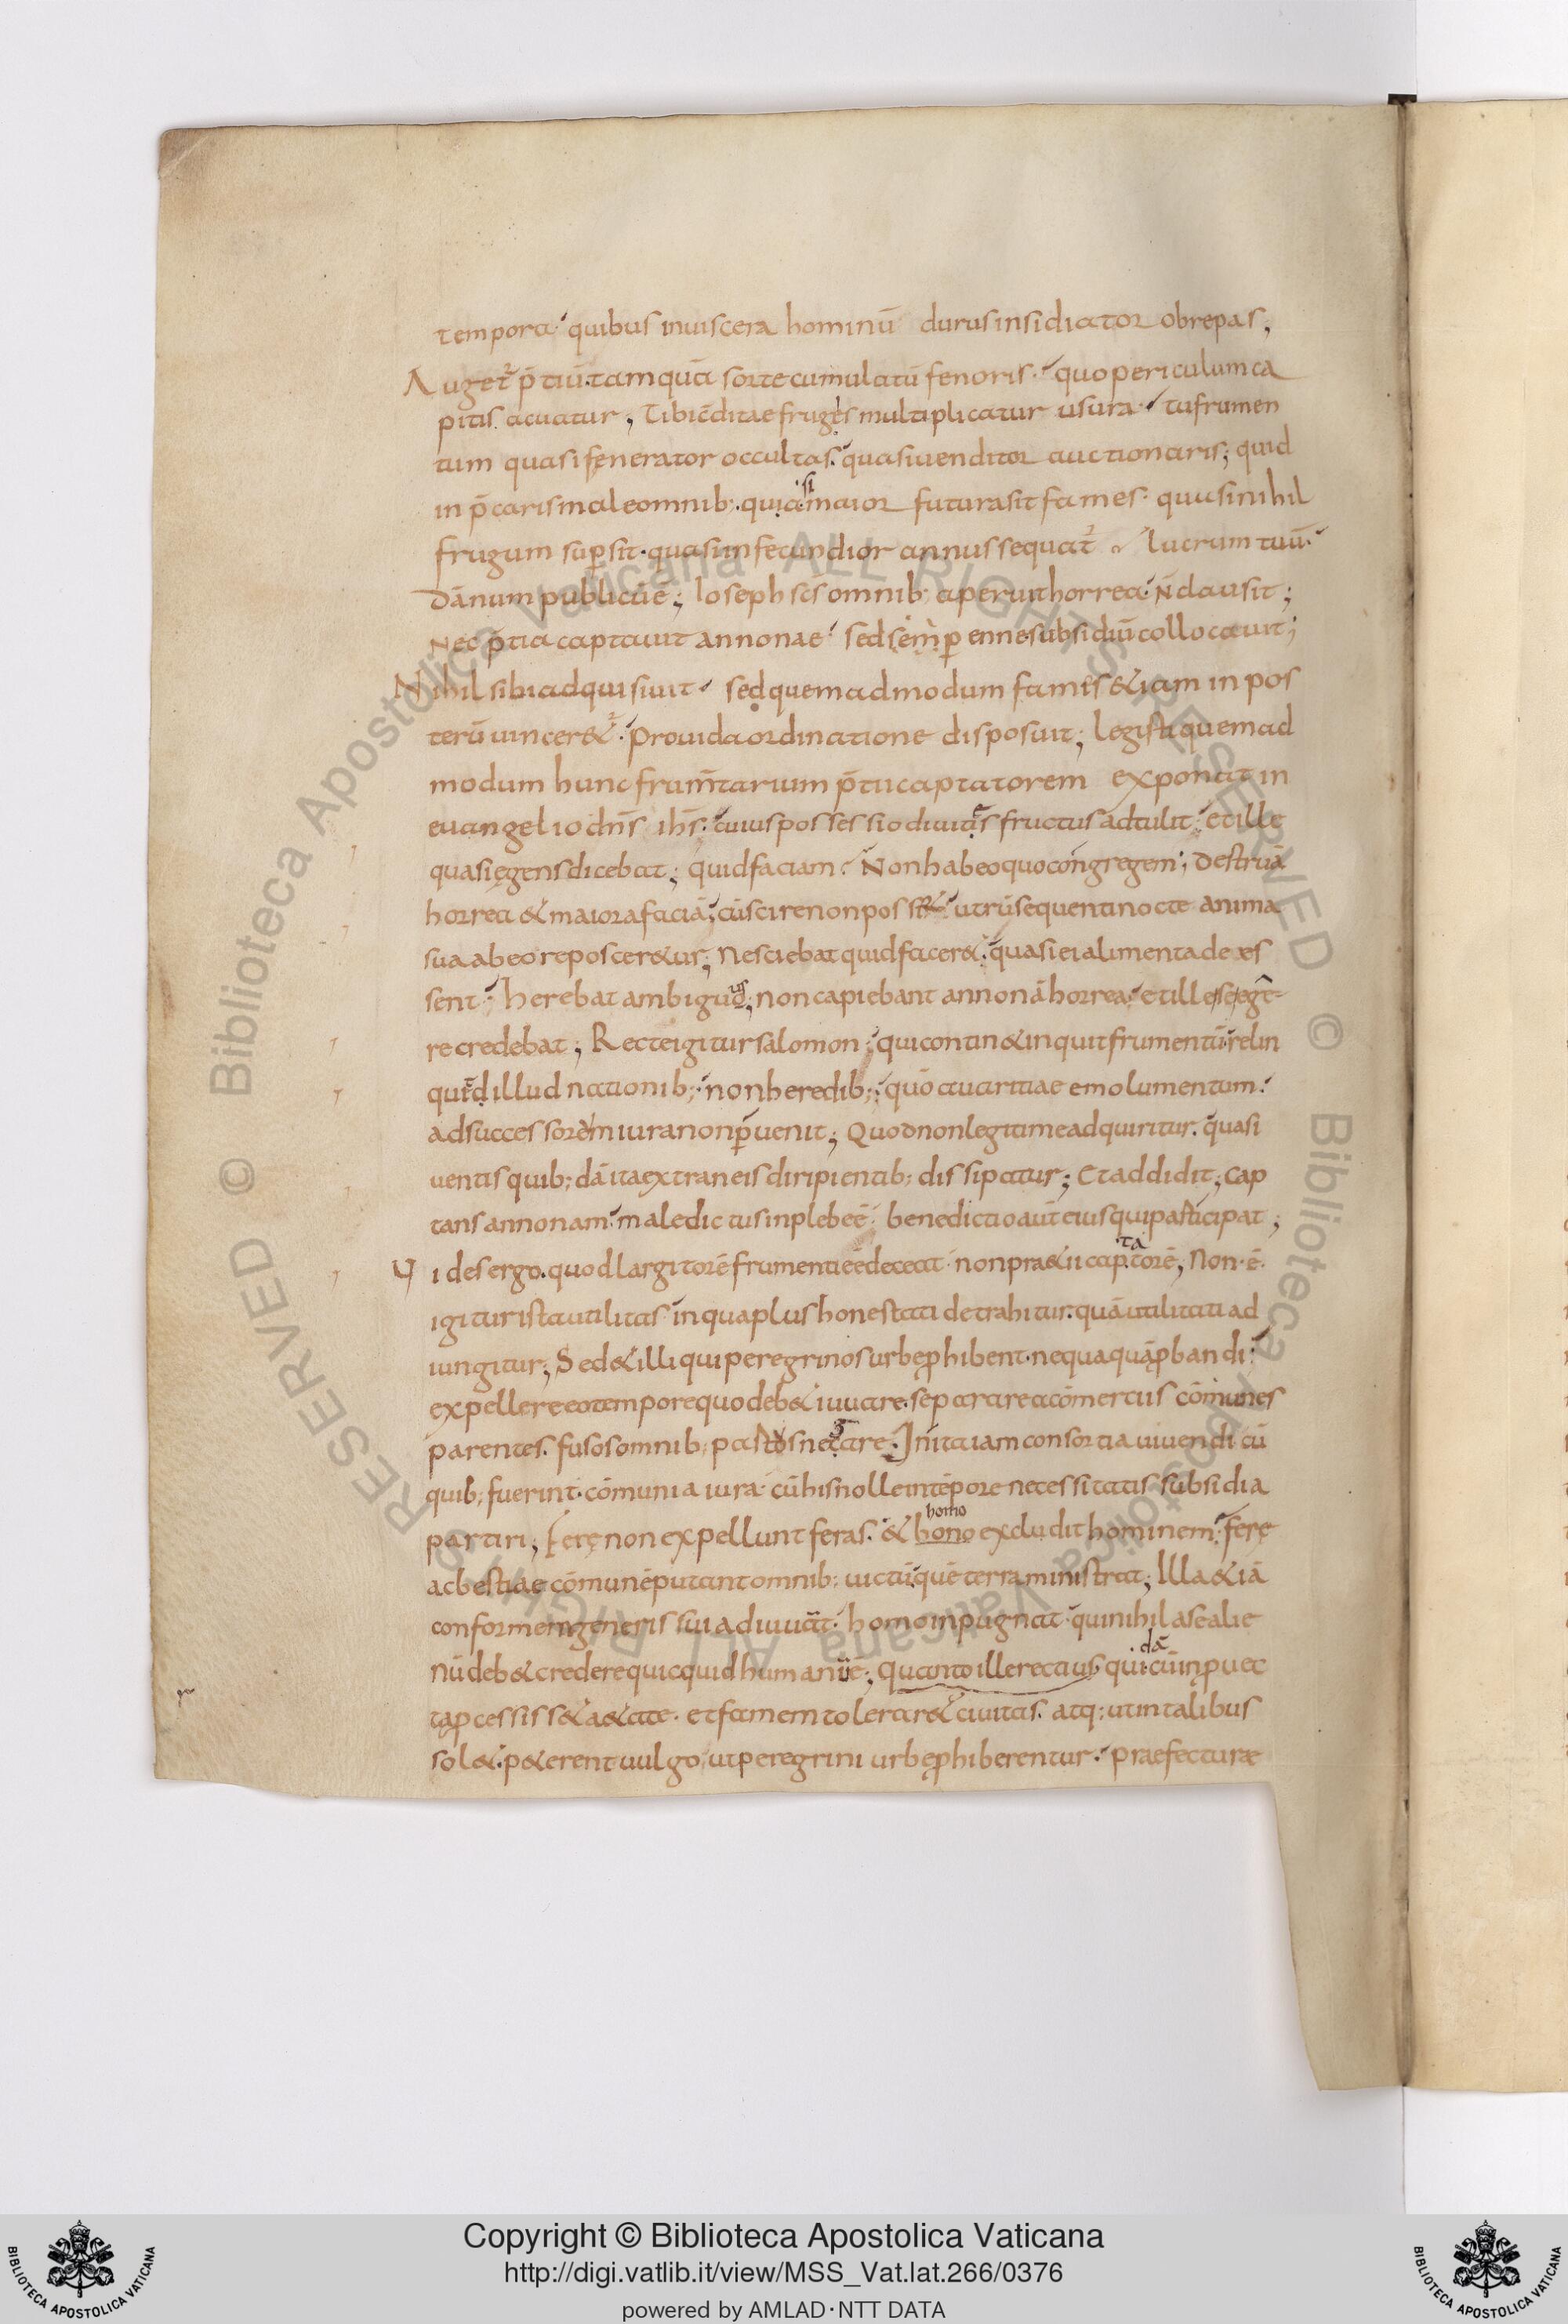 tempora quibus inuiscera hominū durus insidiator obrepas;
Auget᷑ p̄tiū. tamquā sorte cumulatū fenoris. quo periculum ca
pitis acuatur; Tibi cōditae fruges multiplicatur usura tu frumen
tum quasi fenerator occultas. quasi uenditor auctionaris; quid
inp̄caris male omnib; quia si maior futura sit fames. quasi nihil
frugum suꝑsit. quasi infecundior annus sequat᷑. Lucrum tuū
dānum publicū ē; Ioseph scs̄ omnib; aperuit horrea. n̄ clausit;
Nec p̄tia captauit annonae. sed sem̄ ꝑenne subsidiū collocauit;
Nihil sibi adquisiuit. sed quemadmodum famis & iam in pos
terū uincer&᷑. Prouida ordinatione disposuit; legisti quemad
modum hunc frum̄tarium p̄tii captatorem exponat in
euangelio dn̄s ihs̄. cuius possessio diuitās fructus adtulit. et ille
quasi ęgens dicebat; quid faciam. Non habeo quo congregem; Destruā
horrea & maiora faciā; cū scire non poss& utrū sequenti nocte anima
sua ab eo reposcer&ur; Nesciebat quid facer&. quasi ei alimenta dees
sent. herebat ambiguus; non capiebant annonā horrea. et ille se egē
re credebat; Recte igitur salomon. qui contin& inquit frumentū relin
qu&d illud nationib; non heredib; quō auaritiae emolumentum.
ad successorem iura non ꝑuenit; Quod non legitime adquiritur. quasi
uentis quib;dā ita extraneis diripientib; dissipatur; Et addidit; cap
tans annonam. maledictus in plebe ē. benedictio aut̄ eius qui participat;
Vides ergo. quod largitorē frumenti eē deceat. non pra&ii captatorē; Non. ē.
igitur ista utilitas in qua plus honestati detrahitur. quā utilitati ad
iungitur; Sed & illi qui peregrinos urbe ꝓhibent. nequaquā ꝓbandi.
expellere eo tempore quo deb& iuuare. separare a cōmerciis cōmunes
parentes. fusos omnib; partos negare. Inita iam consortia uiuendi cū
quib; fuerint cōmunia iura. cū his nolle in tēpore necessitatis subsidia
partiri; Ferę non expellunt feras. & homo bono excludit hominem. fere
ac bestiae cōmunē putant omnib; uictū quē terra ministrat; Illa & iā
conformem generis sui adiuuāt. homo inpugnat. qui nihil a se alie
nū deb& credere quicquid humani ē; Quanto ille rectius qui dā cū in ꝓuec
ta ꝓcessiss& a&ate. et famem tolerar& ciuitas. atq; ut in talibus
sol&. p&erent uulgo ut peregrini urbe ꝓhiberentur. praefecturae
Copyright © Biblioteca Apostolica Vaticana
http://digi.vatlib.it/view/MSS_Vat.lat.266/0376
powered by AMLAD·NTT DATA
BIBLIOTECA APOSTOLICA VATICANA
BIBLIOTECA APOSTOLICA VATICANA
© Biblioteca Apostolica Vaticana ALL RIGHTS RESERVED
© Biblioteca Apostolica Vaticana ALL RIGHTS RESERVED